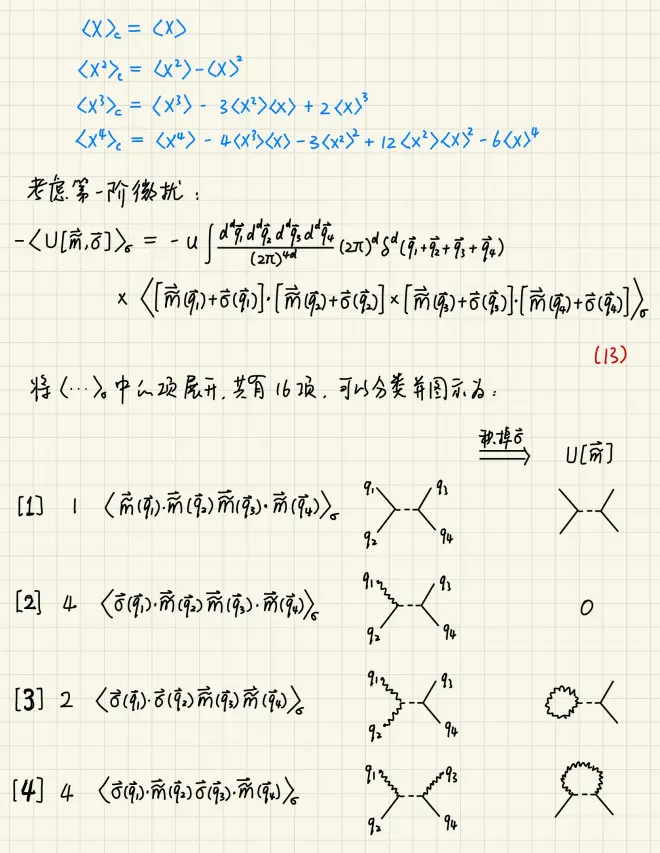 ⟨X⟩_c = ⟨X⟩
⟨X²⟩_c = ⟨X²⟩ - ⟨X⟩²
⟨X³⟩_c = ⟨X³⟩ - 3⟨X²⟩⟨X⟩ + 2⟨X⟩³
⟨X⁴⟩_c = ⟨X⁴⟩ - 4⟨X³⟩⟨X⟩ - 3⟨X²⟩² + 12⟨X²⟩⟨X⟩² - 6⟨X⟩⁴
考虑第一阶微扰:
-⟨U[m⃗,σ⃗]⟩_σ = -u ∫ d^d q⃗₁ d^d q⃗₂ d^d q⃗₃ d^d q⃗₄ / (2π)^{4d} (2π)^d δ^d(q⃗₁+q⃗₂+q⃗₃+q⃗₄)
× ⟨[m⃗(q⃗₁)+σ⃗(q⃗₁)]·[m⃗(q⃗₂)+σ⃗(q⃗₂)]×[m⃗(q⃗₃)+σ⃗(q⃗₃)]·[m⃗(q⃗₄)+σ⃗(q⃗₄)]⟩_σ
(13)
将⟨···⟩_σ中的项展开,共有16项,可以分类并图示为:
积掉σ⃗ ⟹ U[m⃗]
[1] 1 ⟨m⃗(q⃗₁)·m⃗(q⃗₂) m⃗(q⃗₃)·m⃗(q⃗₄)⟩_σ q₁ q₂ q₃ q₄
[2] 4 ⟨σ⃗(q⃗₁)·m⃗(q⃗₂) m⃗(q⃗₃)·m⃗(q⃗₄)⟩_σ q₁ q₂ q₃ q₄ 0
[3] 2 ⟨σ⃗(q⃗₁)·σ⃗(q⃗₂) m⃗(q⃗₃) m⃗(q⃗₄)⟩_σ q₁ q₂ q₃ q₄
[4] 4 ⟨σ⃗(q⃗₁)·m⃗(q⃗₂) σ⃗(q⃗₃)·m⃗(q⃗₄)⟩_σ q₁ q₂ q₃ q₄